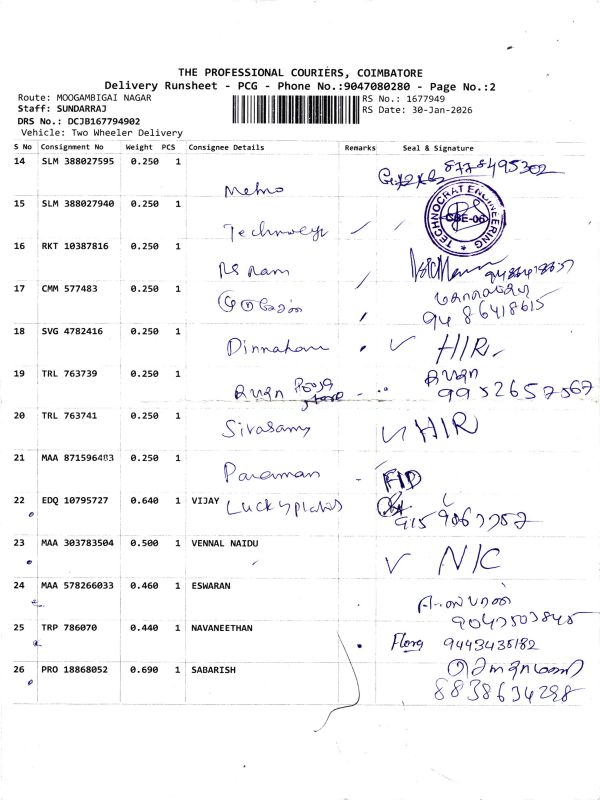 THE PROFESSIONAL COURIERS, COIMBATORE
Delivery Runsheet - PCG - Phone No.:9047080280 - Page No.:2
Route: MOOGAMBIGAI NAGAR
Staff: SUNDARRAJ
DRS No.: DCJB167794902
Vehicle: Two Wheeler Delivery
RS No.: 1677949
RS Date: 30-Jan-2026
S No Consignment No Weight PCS Consignee Details Remarks Seal & Signature
14 SLM 388027595 0.250 1 8778495302
15 SLM 388027940 0.250 1
TECHNOCRAT ENGINEERING CBE-06
16 RKT 10387816 0.250 1 RS Ram
17 CMM 577483 0.250 1
94 86418615
18 SVG 4782416 0.250 1 HIR
19 TRL 763739 0.250 1 பூஜா Pooja store
20 TRL 763741 0.250 1 Sivasamy HIR
21 MAA 871596483 0.250 1 Paraman
22 EDQ 10795727 0.640 1 VIJAY
23 MAA 303783504 0.500 1 VENNAL NAIDU N/C
24 MAA 578266033 0.460 1 ESWARAN
9047503845
25 TRP 786070 0.440 1 NAVANEETHAN 9443435182
26 PRO 18868052 0.690 1 SABARISH
8838634298